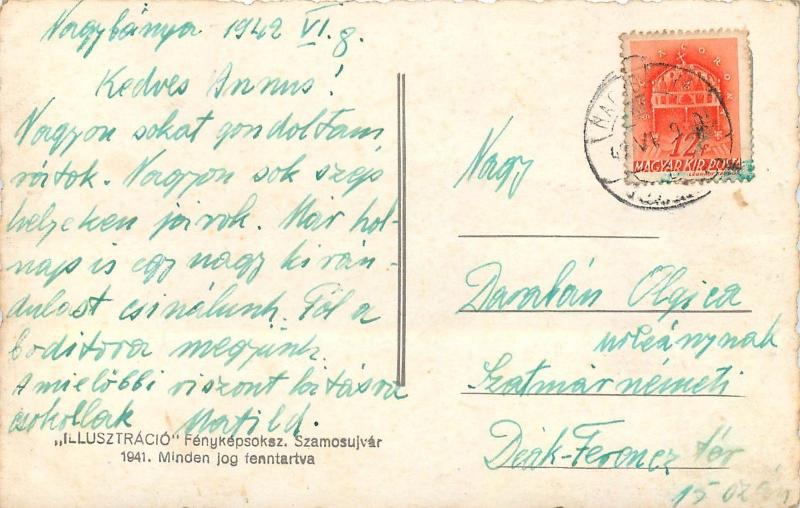 Nagybánya 1942 VI. 8.
Kedves Annus!
Nagyon sokat gondoltam
rátok. Nagyon sok szép
helyeken járok. Már hol-
nap is egy nagy kirán-
dulást csinálunk. Föl a
megyünk.
A mielőbbi viszont látásra
csokollak Matild.
„ILLUSZTRÁCIÓ" Fényképsoksz. Szamosujvár
1941. Minden jog fenntartva
12
MAGYAR KIR. POSTA
Nagy
Darabán Olgica
urleánynak
Szatmárnémeti
Deák-Ferencz tér
15